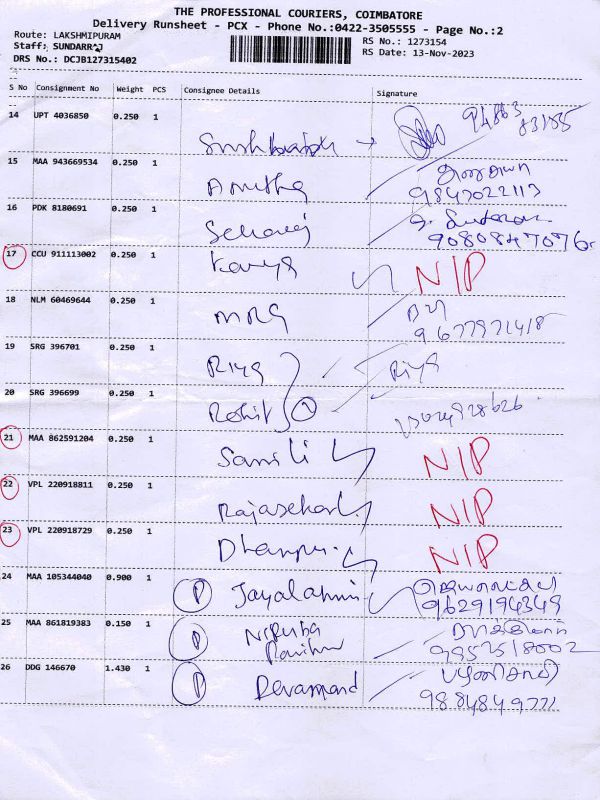 THE PROFESSIONAL COURIERS, COIMBATORE
Delivery Runsheet - PCX - Phone No.:0422-3505555 - Page No.:2
Route: LAKSHMIPURAM
RS No.: 1273154
Staff: SUNDARRAJ
RS Date: 13-Nov-2023
DRS No.: DCJB127315402
S No Consignment No Weight PCS Consignee Details Signature
14 UPT 4036850 0.250 1
15 MAA 943669534 0.250 1 Anitha
9843022113
16 PDK 8180691 0.250 1 Selvaraj
9080847076
17 CCU 911113002 0.250 1 Kavya N/P
18 NLM 60469644 0.250 1 MRG
9677971418
19 SRG 396701 0.250 1 Riya Riya
20 SRG 396699 0.250 1 Rohit 2
21 MAA 862591204 0.250 1 N/P
22 VPL 220918811 0.250 1 Rajasekar N/P
23 VPL 220918729 0.250 1 N/P
24 MAA 105344040 0.900 1 P Jayalakshmi
9629194349
25 MAA 861819383 0.150 1 P
26 DDG 146670 1.430 1 P Devanand பழனிசாமி
9884849771